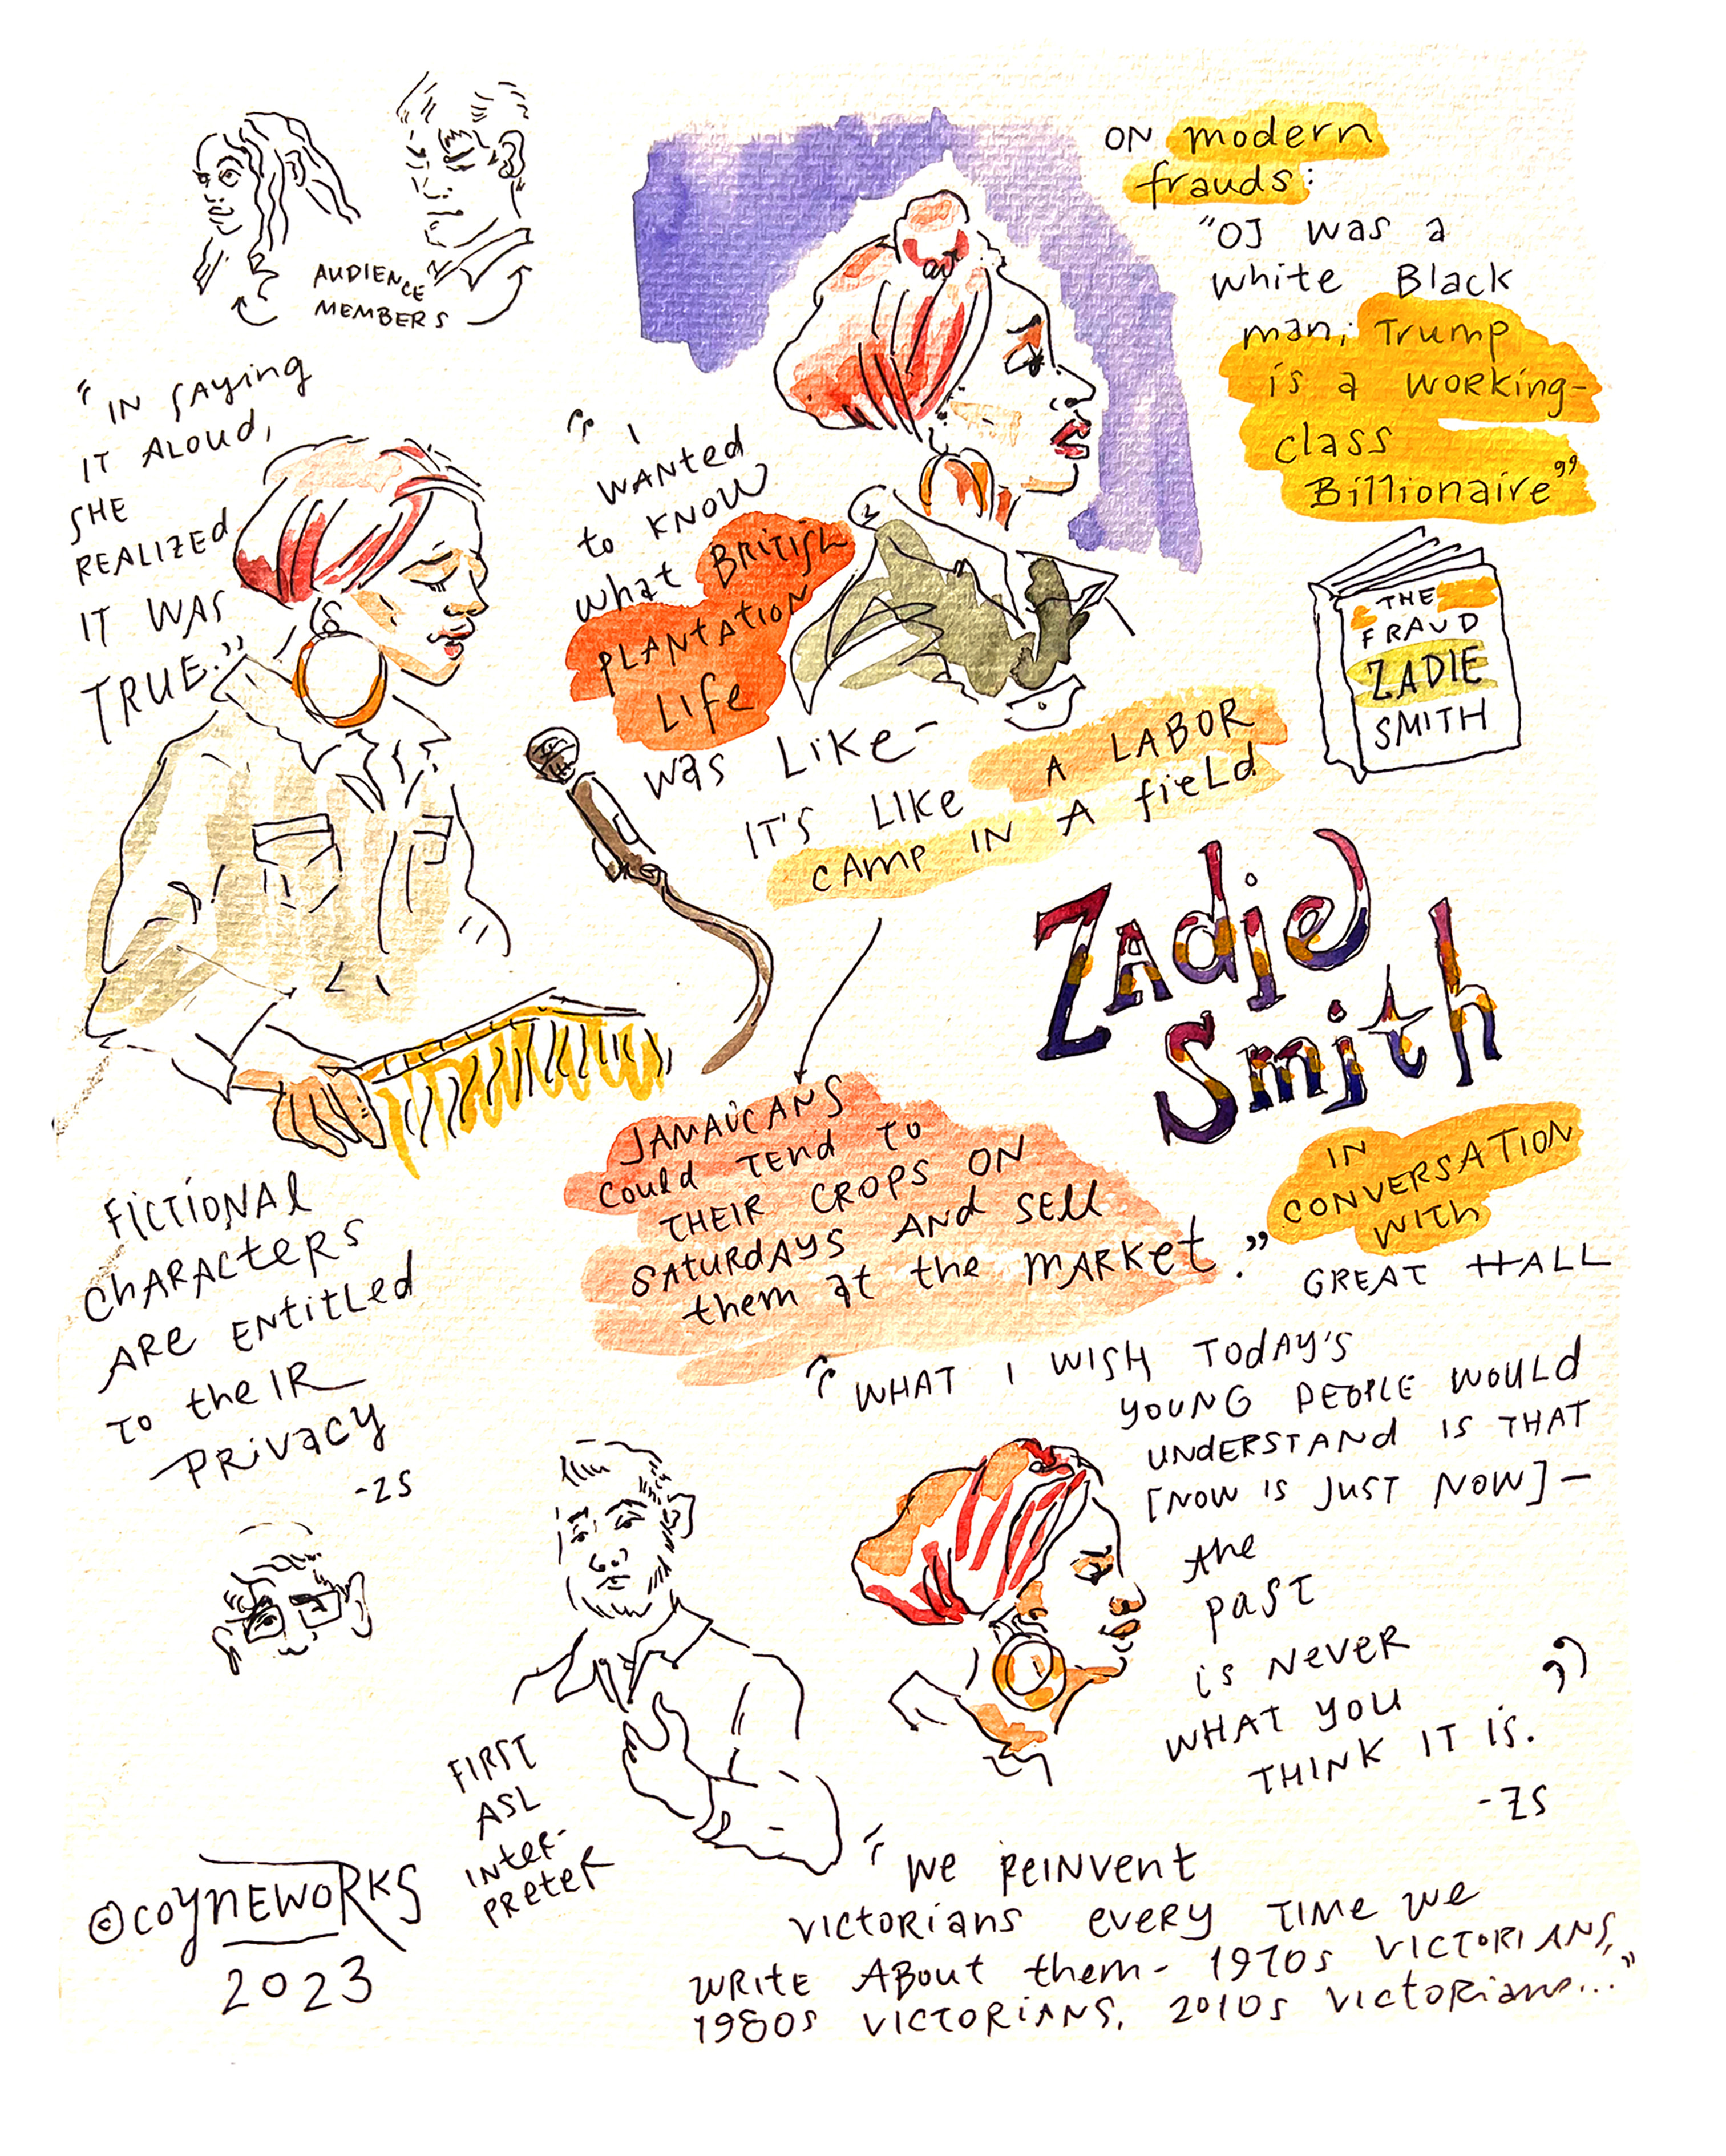 AUDIENCE
MEMBERS
ON modern
frauds:
"OJ was a
white Black
man; Trump
is a working-
class
Billionaire"
"IN SAYING
IT ALOUD,
SHE
REALIZED
IT WAS
TRUE."
" I
WANTED
to KNOW
what BRITISH
PLANTATION
LIFE
was LIKE-
IT'S LIKE A LABOR
CAMP IN A field
THE
FRAUD
ZADIE
SMITH
Zadie
Smith
IN
CONVERSATION
WITH
GREAT HALL
JAMAICANS
could TEND TO
THEIR CROPS ON
SATURDAYS AND SELL
them at the MARKET."
FICTIONAL
CHARACTERS
ARE ENTITLED
TO theIR
PRIVACY
-ZS
"WHAT I WISH TODAY'S
YOUNG PEOPLE WOULD
UNDERSTAND IS THAT
[NOW IS JUST NOW]-
the
past
is NEVER
WHAT YOU
THINK IT IS."
-ZS
FIRST
ASL
INTER-
PRETER
"WE REINVENT
VICTORIANS EVERY TIME WE
WRITE ABOUT them- 1970s VICTORIANS,
1980s VICTORIANS, 2010s VICTORIANS..."
©COYNEWORKS
2023